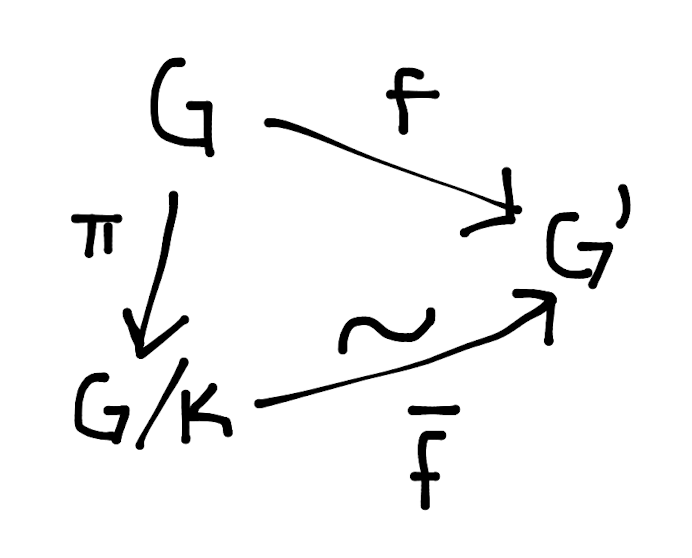 G
f
π
G'
~
G/K
f̄